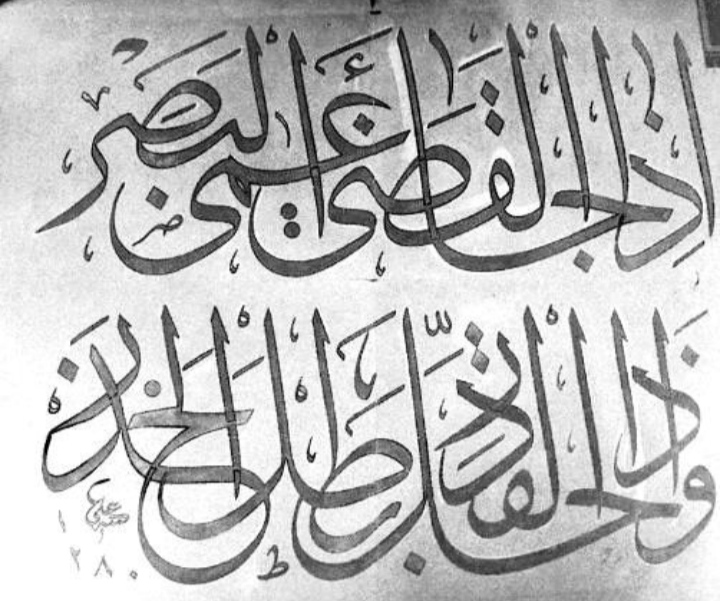 إذا جاء القضاء عمي البصر
وإذا جاء القدر بطل الحذر
١٢٨٠